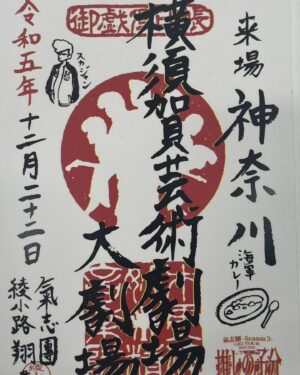 来場
神奈川
海軍
カレー
横須賀芸術劇場
大劇場
令和五年
十二月二十二日
スカジャン
氣志團
綾小路翔
氣志團 -Season 3-
GIG TOUR